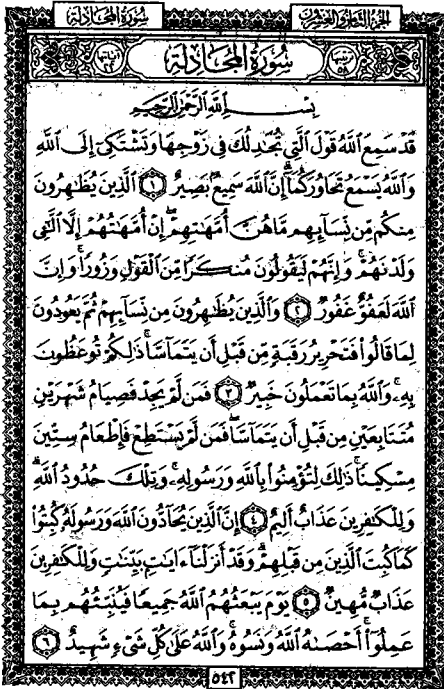 سُورَةُ المُجَادلة
الجزء الثامن والعشرون
سُورَةُ المُجَادلة
بِسْمِ اللَّهِ الرَّحْمَٰنِ الرَّحِيمِ
قَدْ سَمِعَ اللَّهُ قَوْلَ الَّتِي تُجَادِلُكَ فِي زَوْجِهَا وَتَشْتَكِي إِلَى اللَّهِ
وَاللَّهُ يَسْمَعُ تَحَاوُرَكُمَا إِنَّ اللَّهَ سَمِيعٌ بَصِيرٌ ١ الَّذِينَ يُظَاهِرُونَ
مِنكُم مِّن نِّسَائِهِم مَّا هُنَّ أُمَّهَاتِهِمْ إِنْ أُمَّهَاتُهُمْ إِلَّا اللَّائِي
وَلَدْنَهُمْ وَإِنَّهُمْ لَيَقُولُونَ مُنكَرًا مِّنَ الْقَوْلِ وَزُورًا وَإِنَّ
اللَّهَ لَعَفُوٌّ غَفُورٌ ٢ وَالَّذِينَ يُظَاهِرُونَ مِن نِّسَائِهِمْ ثُمَّ يَعُودُونَ
لِمَا قَالُوا فَتَحْرِيرُ رَقَبَةٍ مِّن قَبْلِ أَن يَتَمَاسَّا ذَٰلِكُمْ تُوعَظُونَ
بِهِ وَاللَّهُ بِمَا تَعْمَلُونَ خَبِيرٌ ٣ فَمَن لَّمْ يَجِدْ فَصِيَامُ شَهْرَيْنِ
مُتَتَابِعَيْنِ مِن قَبْلِ أَن يَتَمَاسَّا فَمَن لَّمْ يَسْتَطِعْ فَإِطْعَامُ سِتِّينَ
مِسْكِينًا ذَٰلِكَ لِتُؤْمِنُوا بِاللَّهِ وَرَسُولِهِ وَتِلْكَ حُدُودُ اللَّهِ
وَلِلْكَافِرِينَ عَذَابٌ أَلِيمٌ ٤ إِنَّ الَّذِينَ يُحَادُّونَ اللَّهَ وَرَسُولَهُ كُبِتُوا
كَمَا كُبِتَ الَّذِينَ مِن قَبْلِهِمْ وَقَدْ أَنزَلْنَا آيَاتٍ بَيِّنَاتٍ وَلِلْكَافِرِينَ
عَذَابٌ مُّهِينٌ ٥ يَوْمَ يَبْعَثُهُمُ اللَّهُ جَمِيعًا فَيُنَبِّئُهُم بِمَا
عَمِلُوا أَحْصَاهُ اللَّهُ وَنَسُوهُ وَاللَّهُ عَلَىٰ كُلِّ شَيْءٍ شَهِيدٌ ٦
٥٤٢